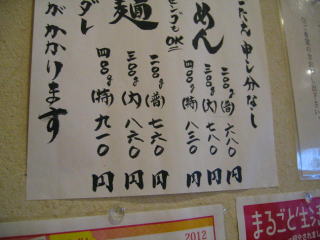 こたえ申し分なし
めん
二〇〇g(普)六八〇円
三〇〇g(大)七八〇円
四〇〇g(特)八三〇円
もOK
麺
二〇〇g(普)七六〇円
三〇〇g(大)八六〇円
四〇〇g(特)九一〇円
ダレ
がかかります
2012
まるごと生活